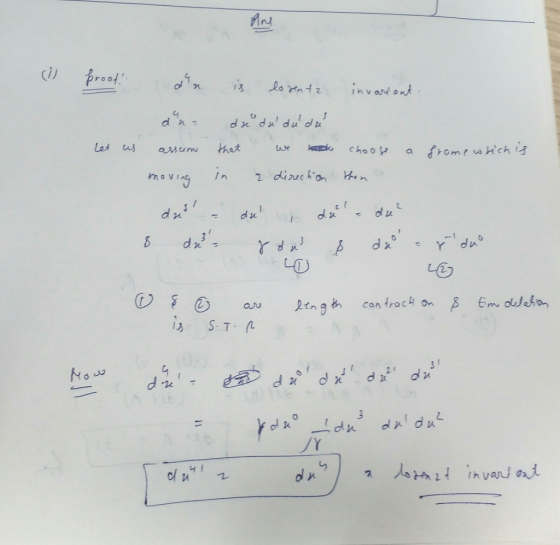 Ans
(i) Proof:- d⁴x is lorentz invariant.
d⁴x = dx⁰ dx¹ dx² dx³
Let us assum that we choose a frame which is
moving in z direction then
dx¹' = dx¹ , dx²' = dx²
& dx³' = γ dx³ & dx⁰' = γ⁻¹ dx⁰
↳① ↳②
① & ② are length contraction & time dilation
is S.T.R
Now d⁴x' = dx⁰' dx¹' dx²' dx³'
= γ dx⁰ 1/γ dx³ dx¹ dx²
dx⁴' = dx⁴ lorentz invariant